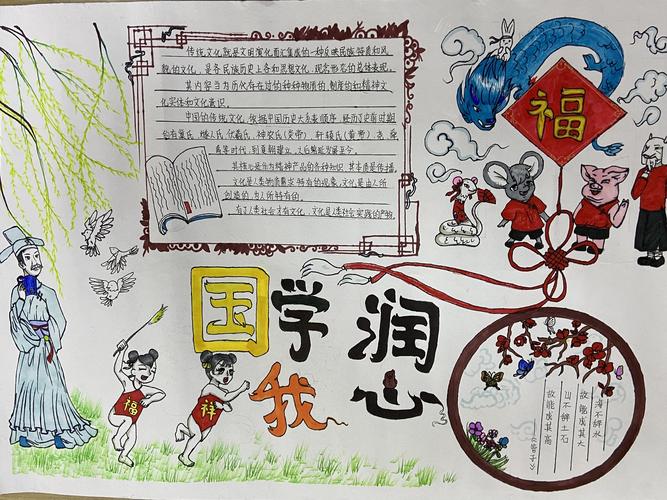 传统文化就是文明演化而汇集成的一种反映民族特质和风
貌的文化，是各民族历史上各种思想文化、观念形态的总体表现。
其内容当为历代存在过的种种物质的、制度的和精神文
化实体和文化意识。
中国的传统文化，依据中国历史大系表顺序，经历了史前时期
的有巢氏、燧人氏、伏羲氏、神农氏（炎帝）、轩辕氏（黄帝）、尧、舜
禹等时代，到夏朝建立
发展至今。
其核心是作为精神产品的各种知识，其本质是传播，
文化是人类
特有的现象，文化是由人所
创造的，为人所特有的。
有了人类社会才有文化，文化是人类社会实践的产物
福
国学润
我心
福
祥
海不辞水
故能成其大
山不辞土石
故能成其高
《管子》